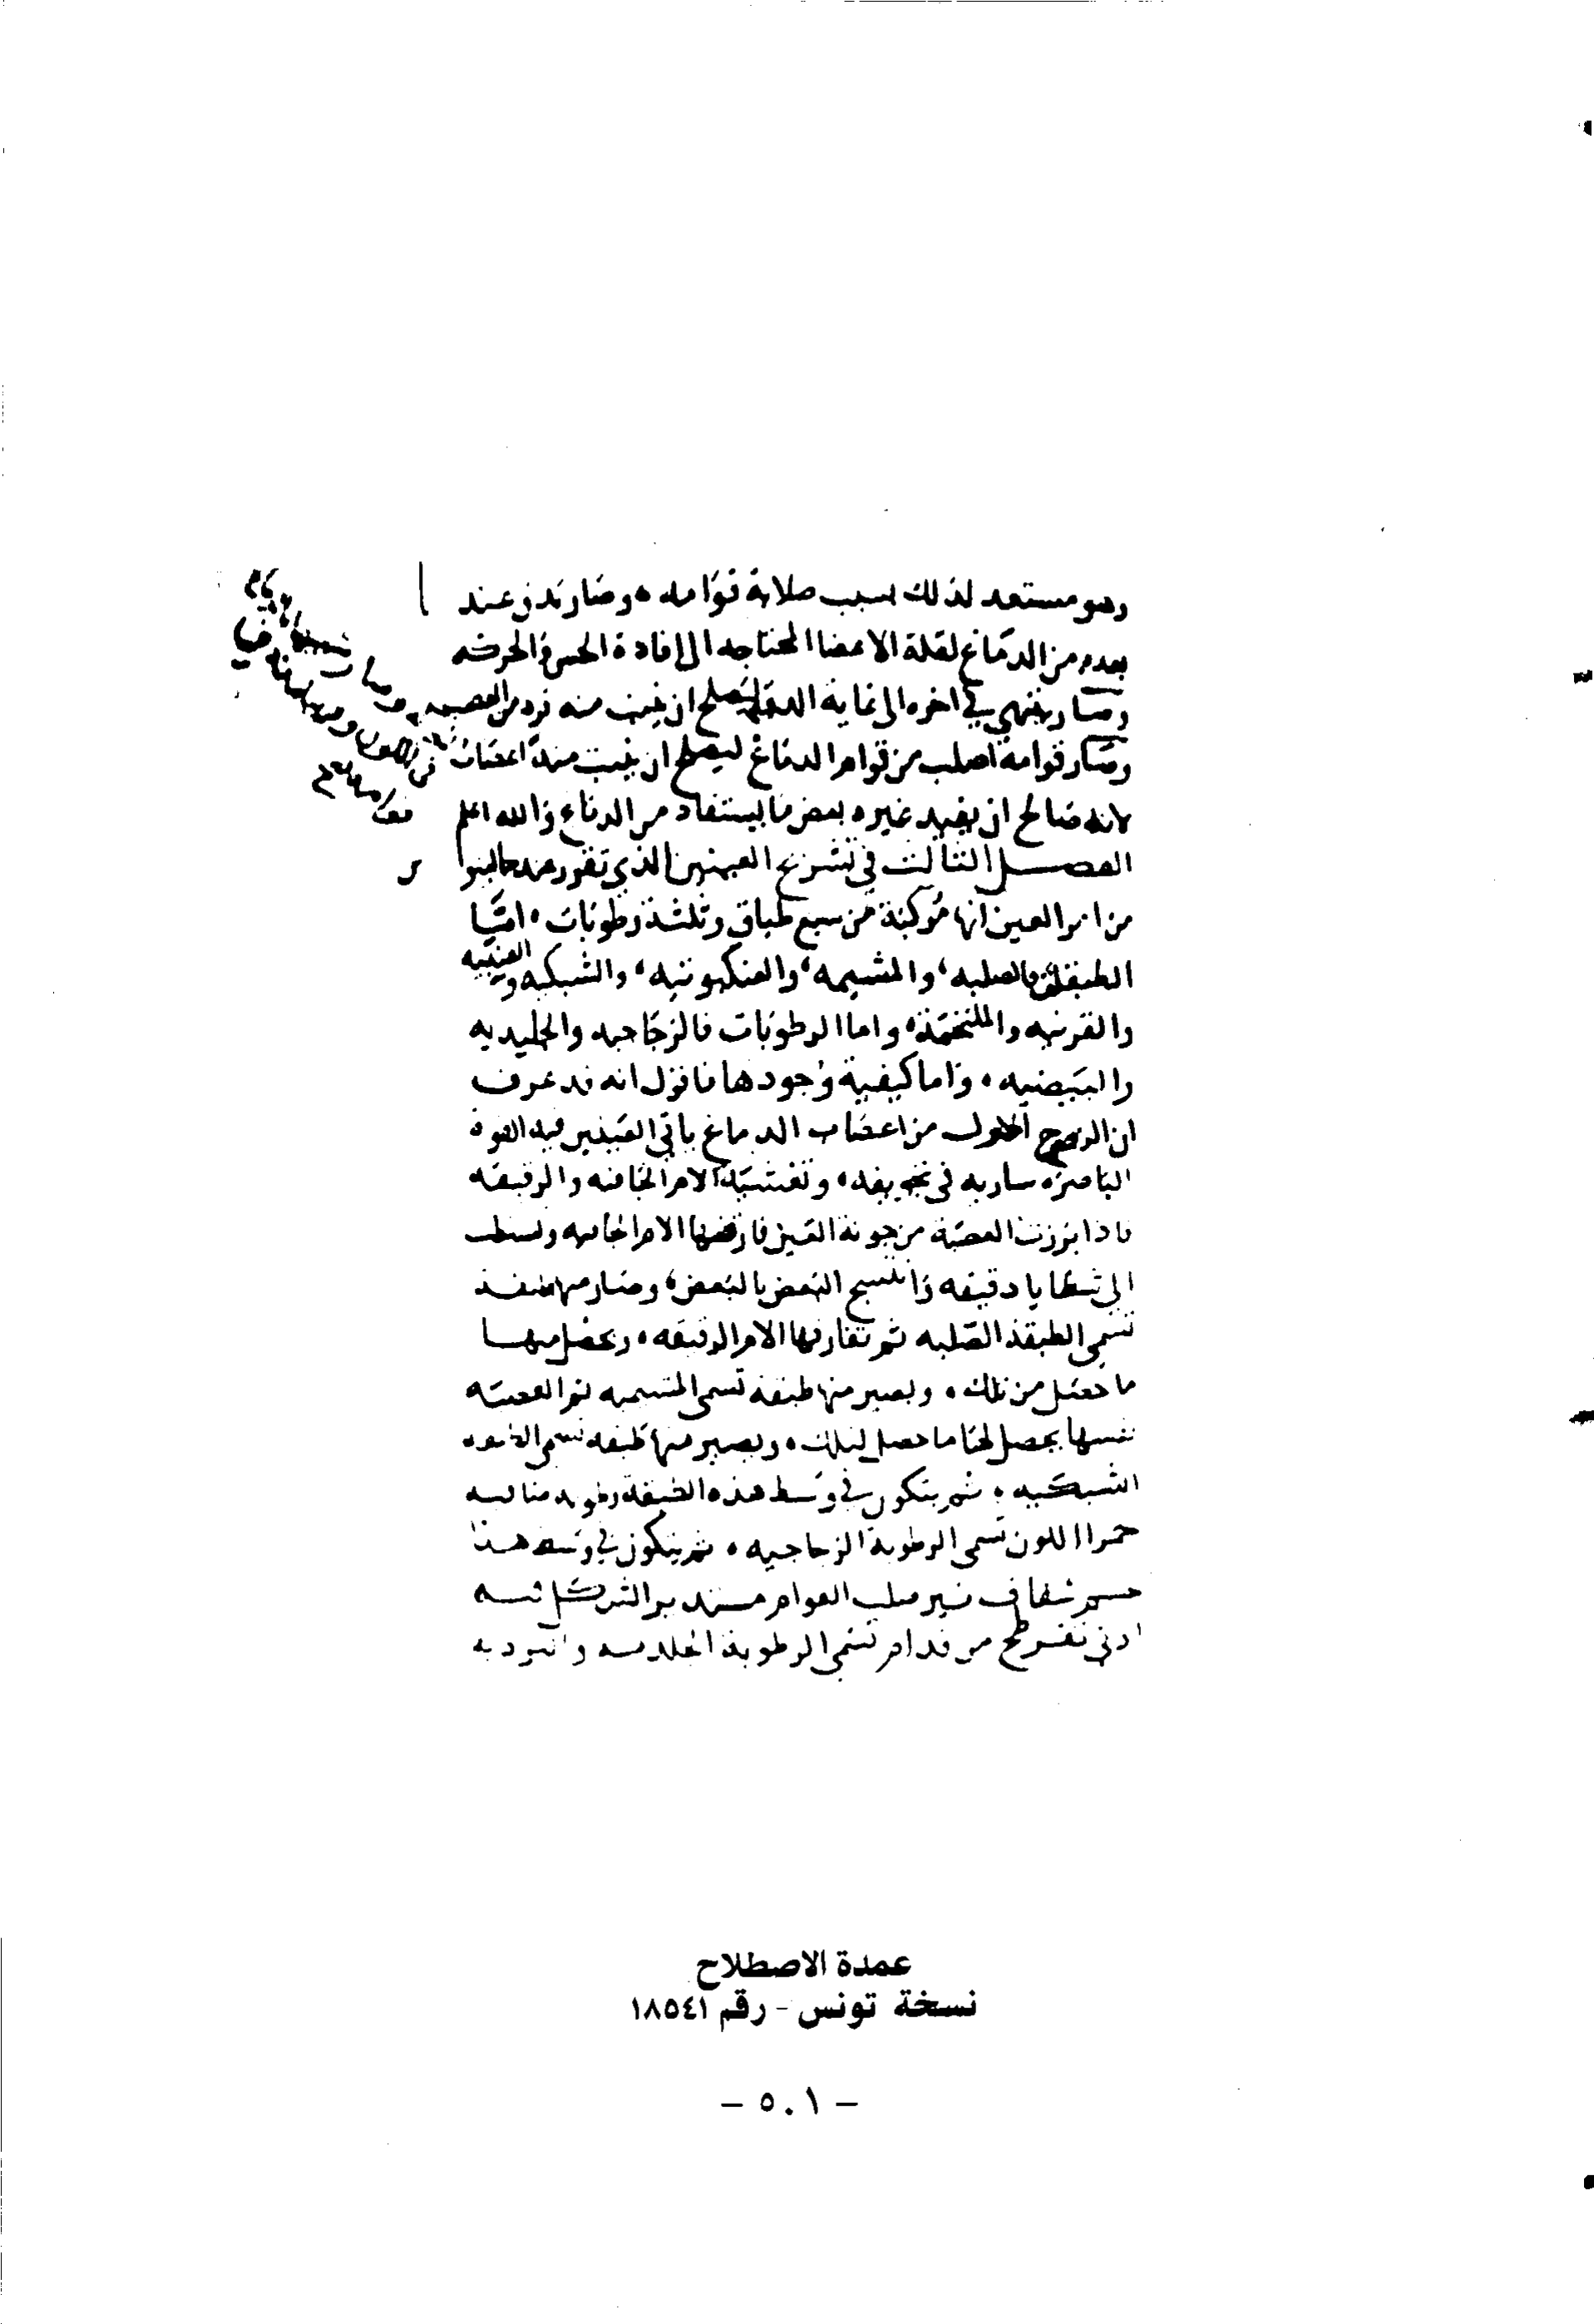 وهو مستعد لذلك بسبب صلابة قوامه، وصار يدق عند
بعده من الدماغ لقلة الاعضا المحتاجه الى افادة الحس والحركه
وصار ينتهي في اخره الى غاية الدقة ليصلح ان ينبت منه فرد من العصب
وصار قوامه اصلب من قوام الدماغ ليصلح ان ينبت منه اعصاب
لانه صالح ان يفيد غيره بعض ما يستفاد من الدماغ والله اعلم
الفصل الثالث في تشريح العينين الذي تقرر عند جالينوا
من امر العين انها مركبة من سبع طباق وثلثة رطوبات، اما
الطبقات فالصلبه، والمشيمه، والعنكبوتيه، والشبكيه والعنبيه
والقرنيه والملتحمة، واما الرطوبات فالزجاجيه والجليديه
والبيضيه، واما كيفية وجودها فاقول انه قد عرف
ان الزوج الاول من اعصاب الدماغ ياتي العينين فيه القوة
الباصره ساريه في تجويفه، وتغشيه الام الجافيه والرقيقه
فاذا برزت العصبة من جوبة العين فارقتها الام الجافيه
الى شظايا دقيقه وانتسج البعض بالبعض، وصار منها طبقه
تسمى الطبقة الصلبه ثم تفارقها الام الرقيقه، ويحصل منها
ما حصل من تلك، ويصير منها طبقه تسمى المشيميه ثم العصبه
نفسها يحصل لها ما حصل لتلك، ويصير منها طبقه تسمى الطبقه
الشبكيه، ثم يتكون في وسط هذه الطبقة رطوبه
حمرا اللون تسمى الرطوبة الزجاجيه، ثم يتكون في وسط هذا
جسم شفاف نير صلب القوام مستدير الشكل فيه
ادنى تفرطح من قدام تسمى الرطوبة الجليديه والبرديه
عمدة الاصطلاح
نسخة تونس - رقم ١٨٥٤١
- ٥٠١ -